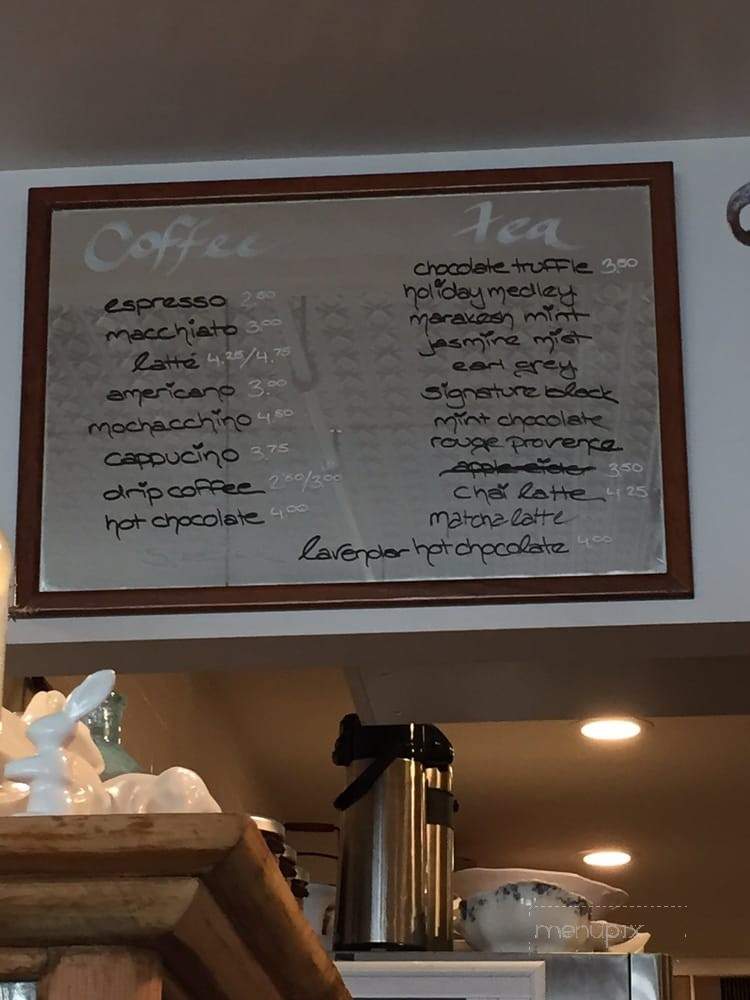 Coffee
espresso 2.50
macchiato 3.00
latté 4.25/4.75
americano 3.00
mochacchino 4.50
cappucino 3.75
drip coffee 2.50/3.00
hot chocolate 4.00
tea
chocolate truffle 3.50
holiday medley
marakesh mint
jasmine mist
earl grey
signature black
mint chocolate
rouge provence
apple cider 3.50
chai latte 4.25
matcha latte
lavender hot chocolate 4.00
menupix